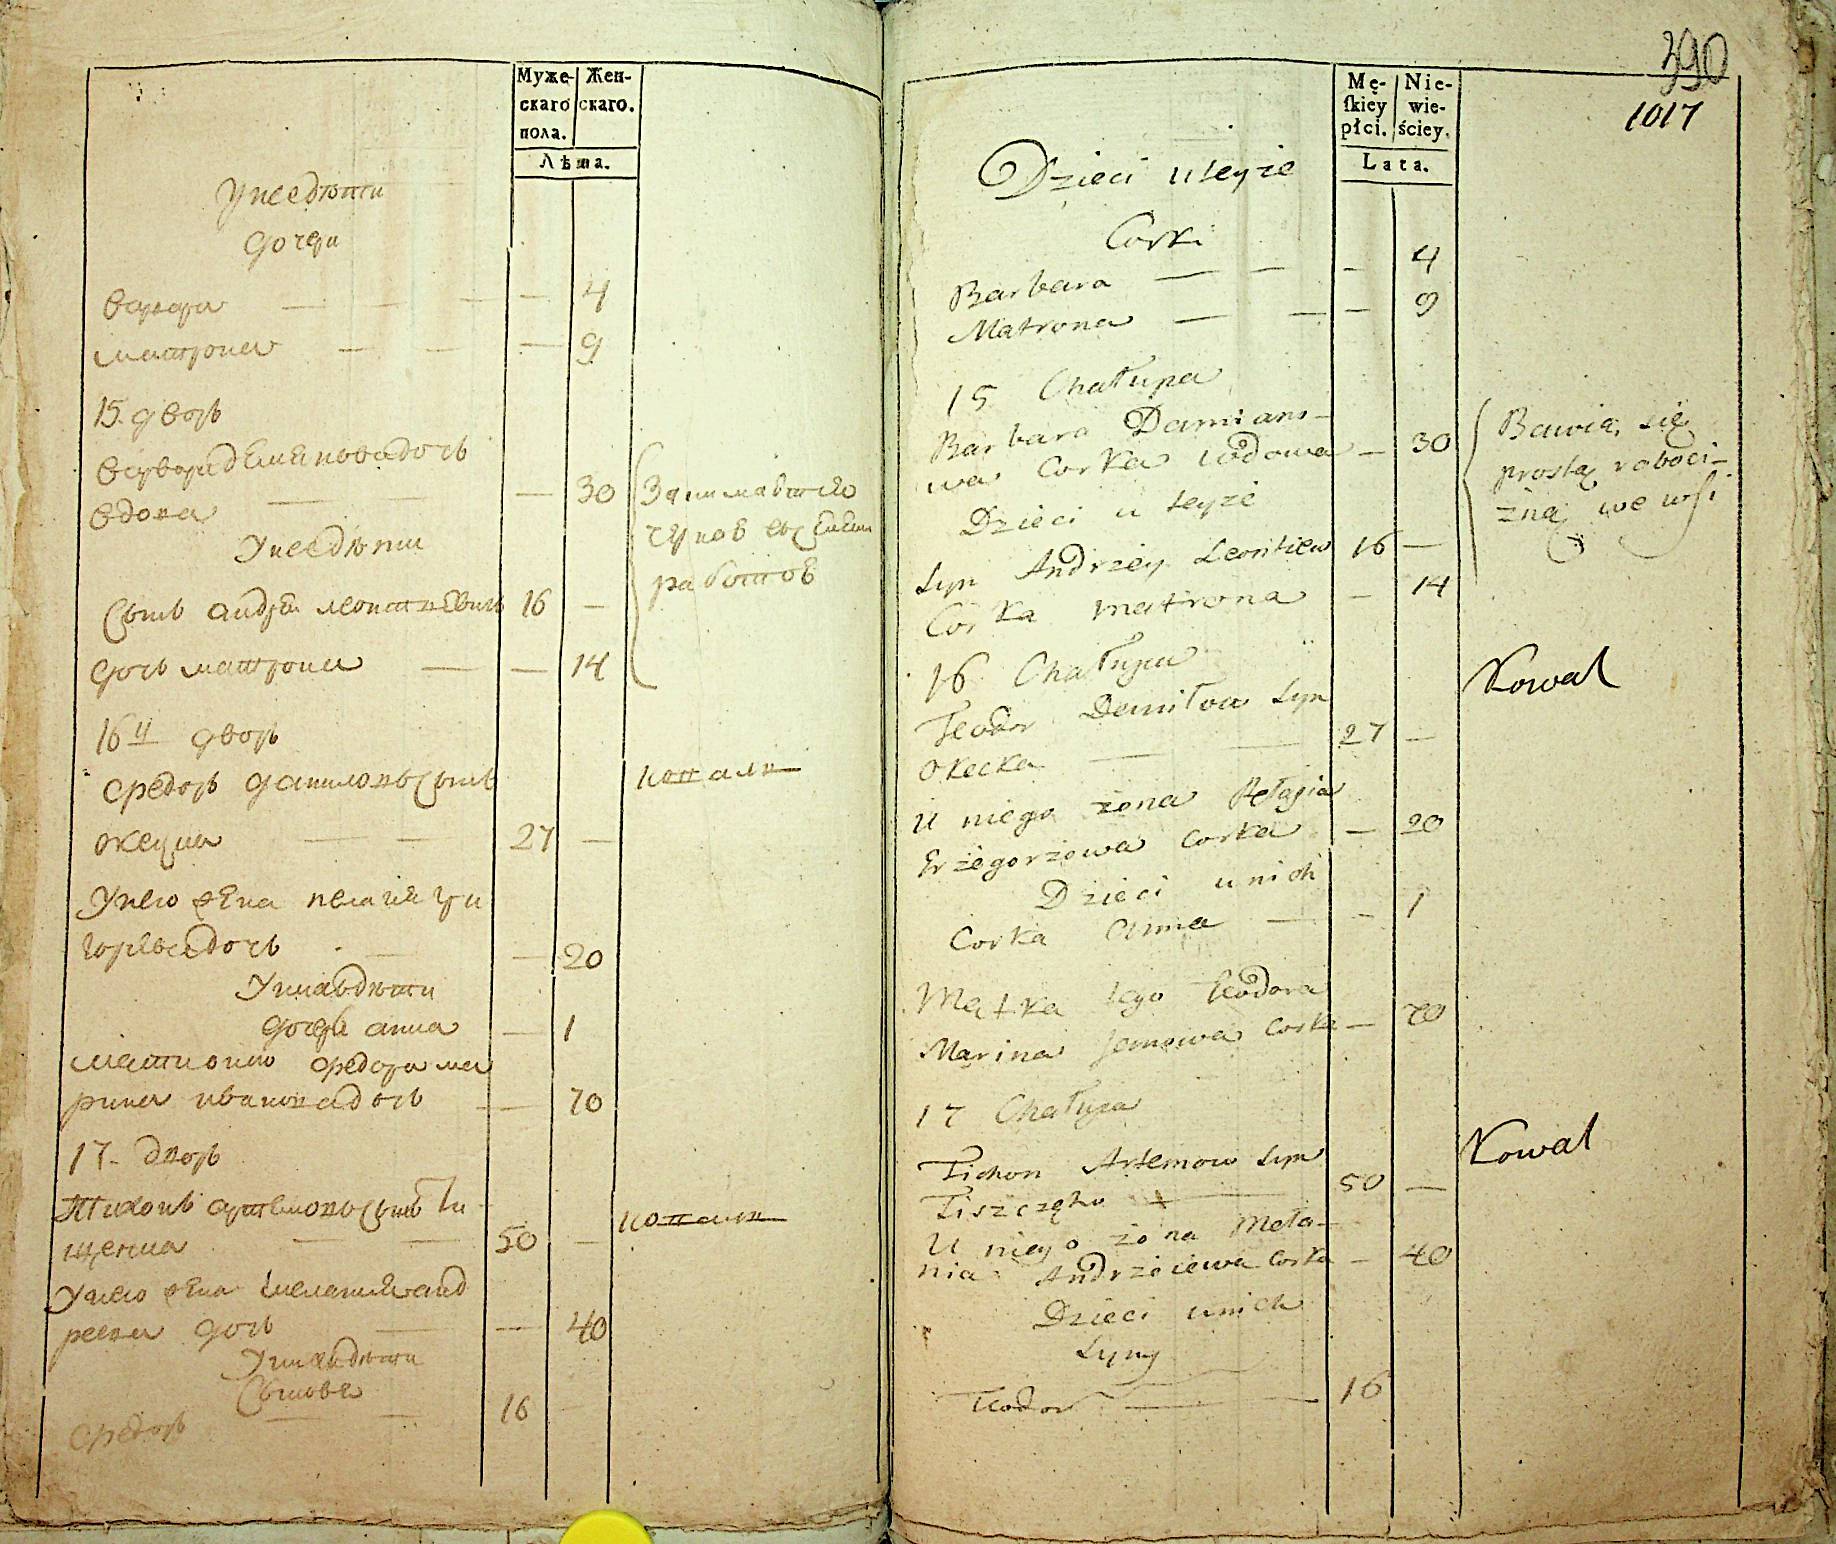 Муже-
скаго
пола.
Жен-
скаго.
Лѣта.
Унеедѣти
дочери
варвара — — — — 4
матрона — — — 9
15. дворъ
варвара демяновадочь
вдова — — 30
Занимаѣтся
чернов
работов
Унеедѣти
Сынъ андрей леонтиевичъ 16 —
дочь матрона — — 14
16й дворъ
Федоръ даниловъ Сынъ
коваль
окецка — — 27 —
Унего жена пелагия гри
горевадочь — — 20
Унихъдѣти
дочерь анна — 1
матиоиго федора ма
рина ивановадочь — 70
17. дворъ
Тихонъ артемовъ Сынъ Ти-
коваль
щенка — — 50 —
Унего жена мелания анд
реева дочь — — 40
Унихъдѣти
Сынове
Федоръ — — 16
390
1017
Mę-
ſkiey
płci.
Nie-
wie-
ściey.
Lata.
Dzieci u teyże
Corki
Barbara — — — 4
Matrona — — — 9
15 Chałupa
Barbara Damiano-
wa Corka wdowa — 30
Bawią się
prostą roboci-
zną we wsi
Dzieci u teyże
Syn Andrzey Leontiew 16 —
Corka Matrona — 14
16 Chałupa
Kowal
Teodor Daniłow Syn
Okecka — — 27 —
U niego żona Pełagia
Grzegorzowa Corka — 20
Dzieci u nich
Corka Anna — — 1
Matka tego Teodora
Marina Janowa Corka — 70
17 Chałupa
Kowal
Tichon Artemow Syn
Tiszczęko — 50 —
U niego żona Meła-
nia Andrzeiewa Corka — 40
Dzieci u nich
Syny
Teodor — — 16